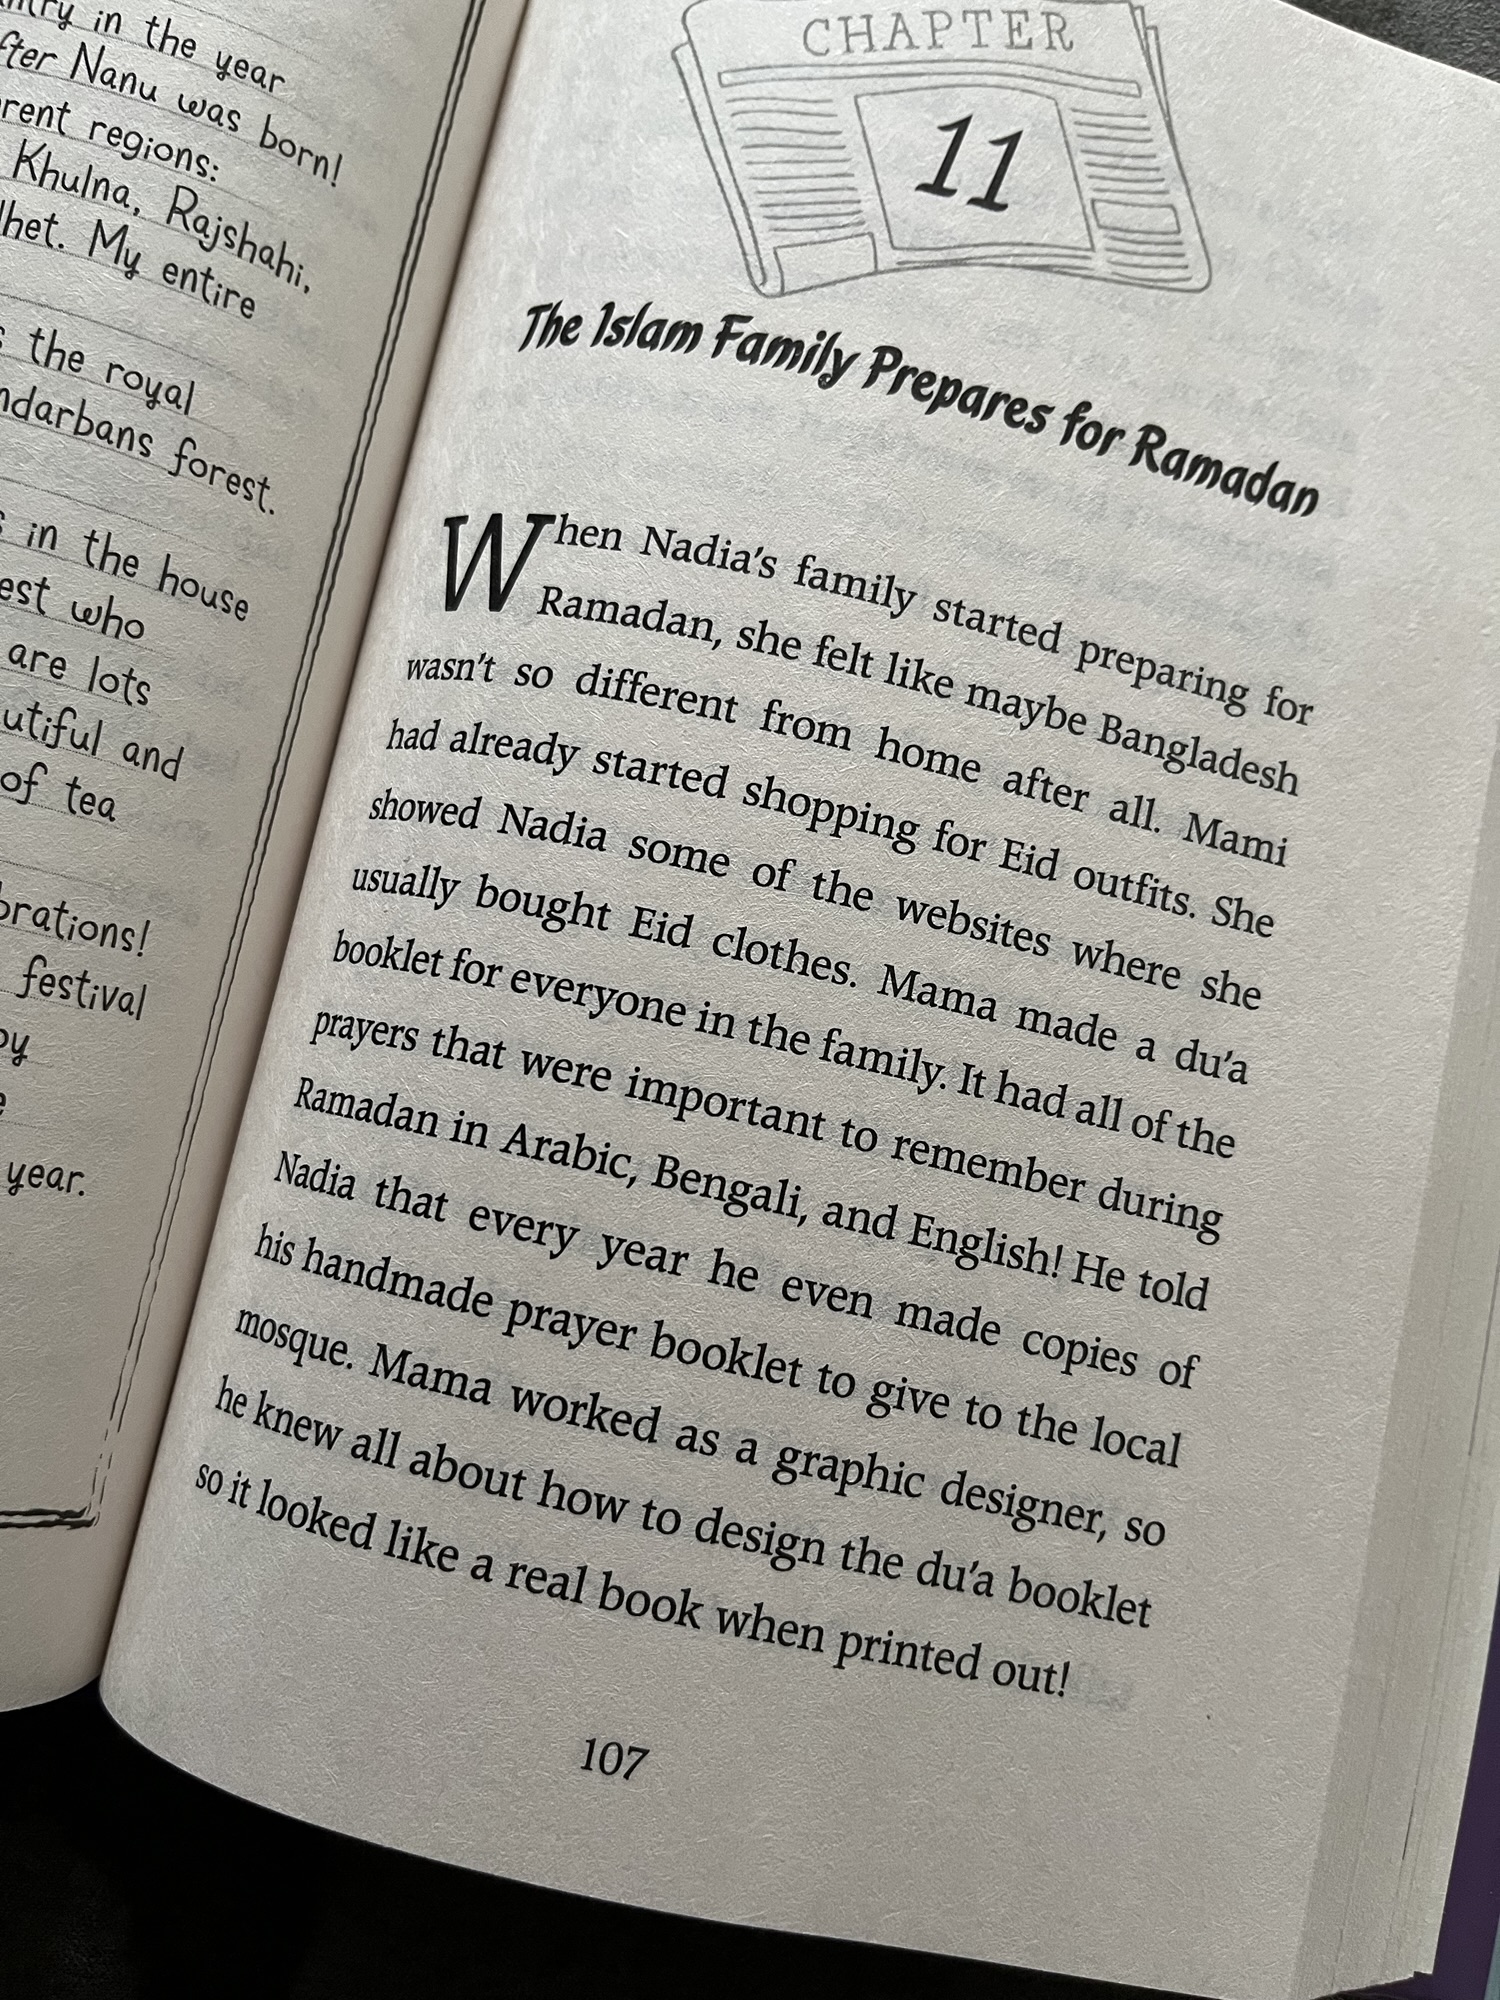 in the year
Nanu was born!
regions:
Khulna, Rajshahi,
My entire
the royal
forest.
in the house
who
are lots
and
of tea
festival
year.
CHAPTER
11
The Islam Family Prepares for Ramadan
When Nadia's family started preparing for
Ramadan, she felt like maybe Bangladesh
wasn't so different from home after all. Mami
had already started shopping for Eid outfits. She
showed Nadia some of the websites where she
usually bought Eid clothes. Mama made a du'a
booklet for everyone in the family. It had all of the
prayers that were important to remember during
Ramadan in Arabic, Bengali, and English! He told
Nadia that every year he even made copies of
his handmade prayer booklet to give to the local
mosque. Mama worked as a graphic designer, so
he knew all about how to design the du'a booklet
so it looked like a real book when printed out!
107